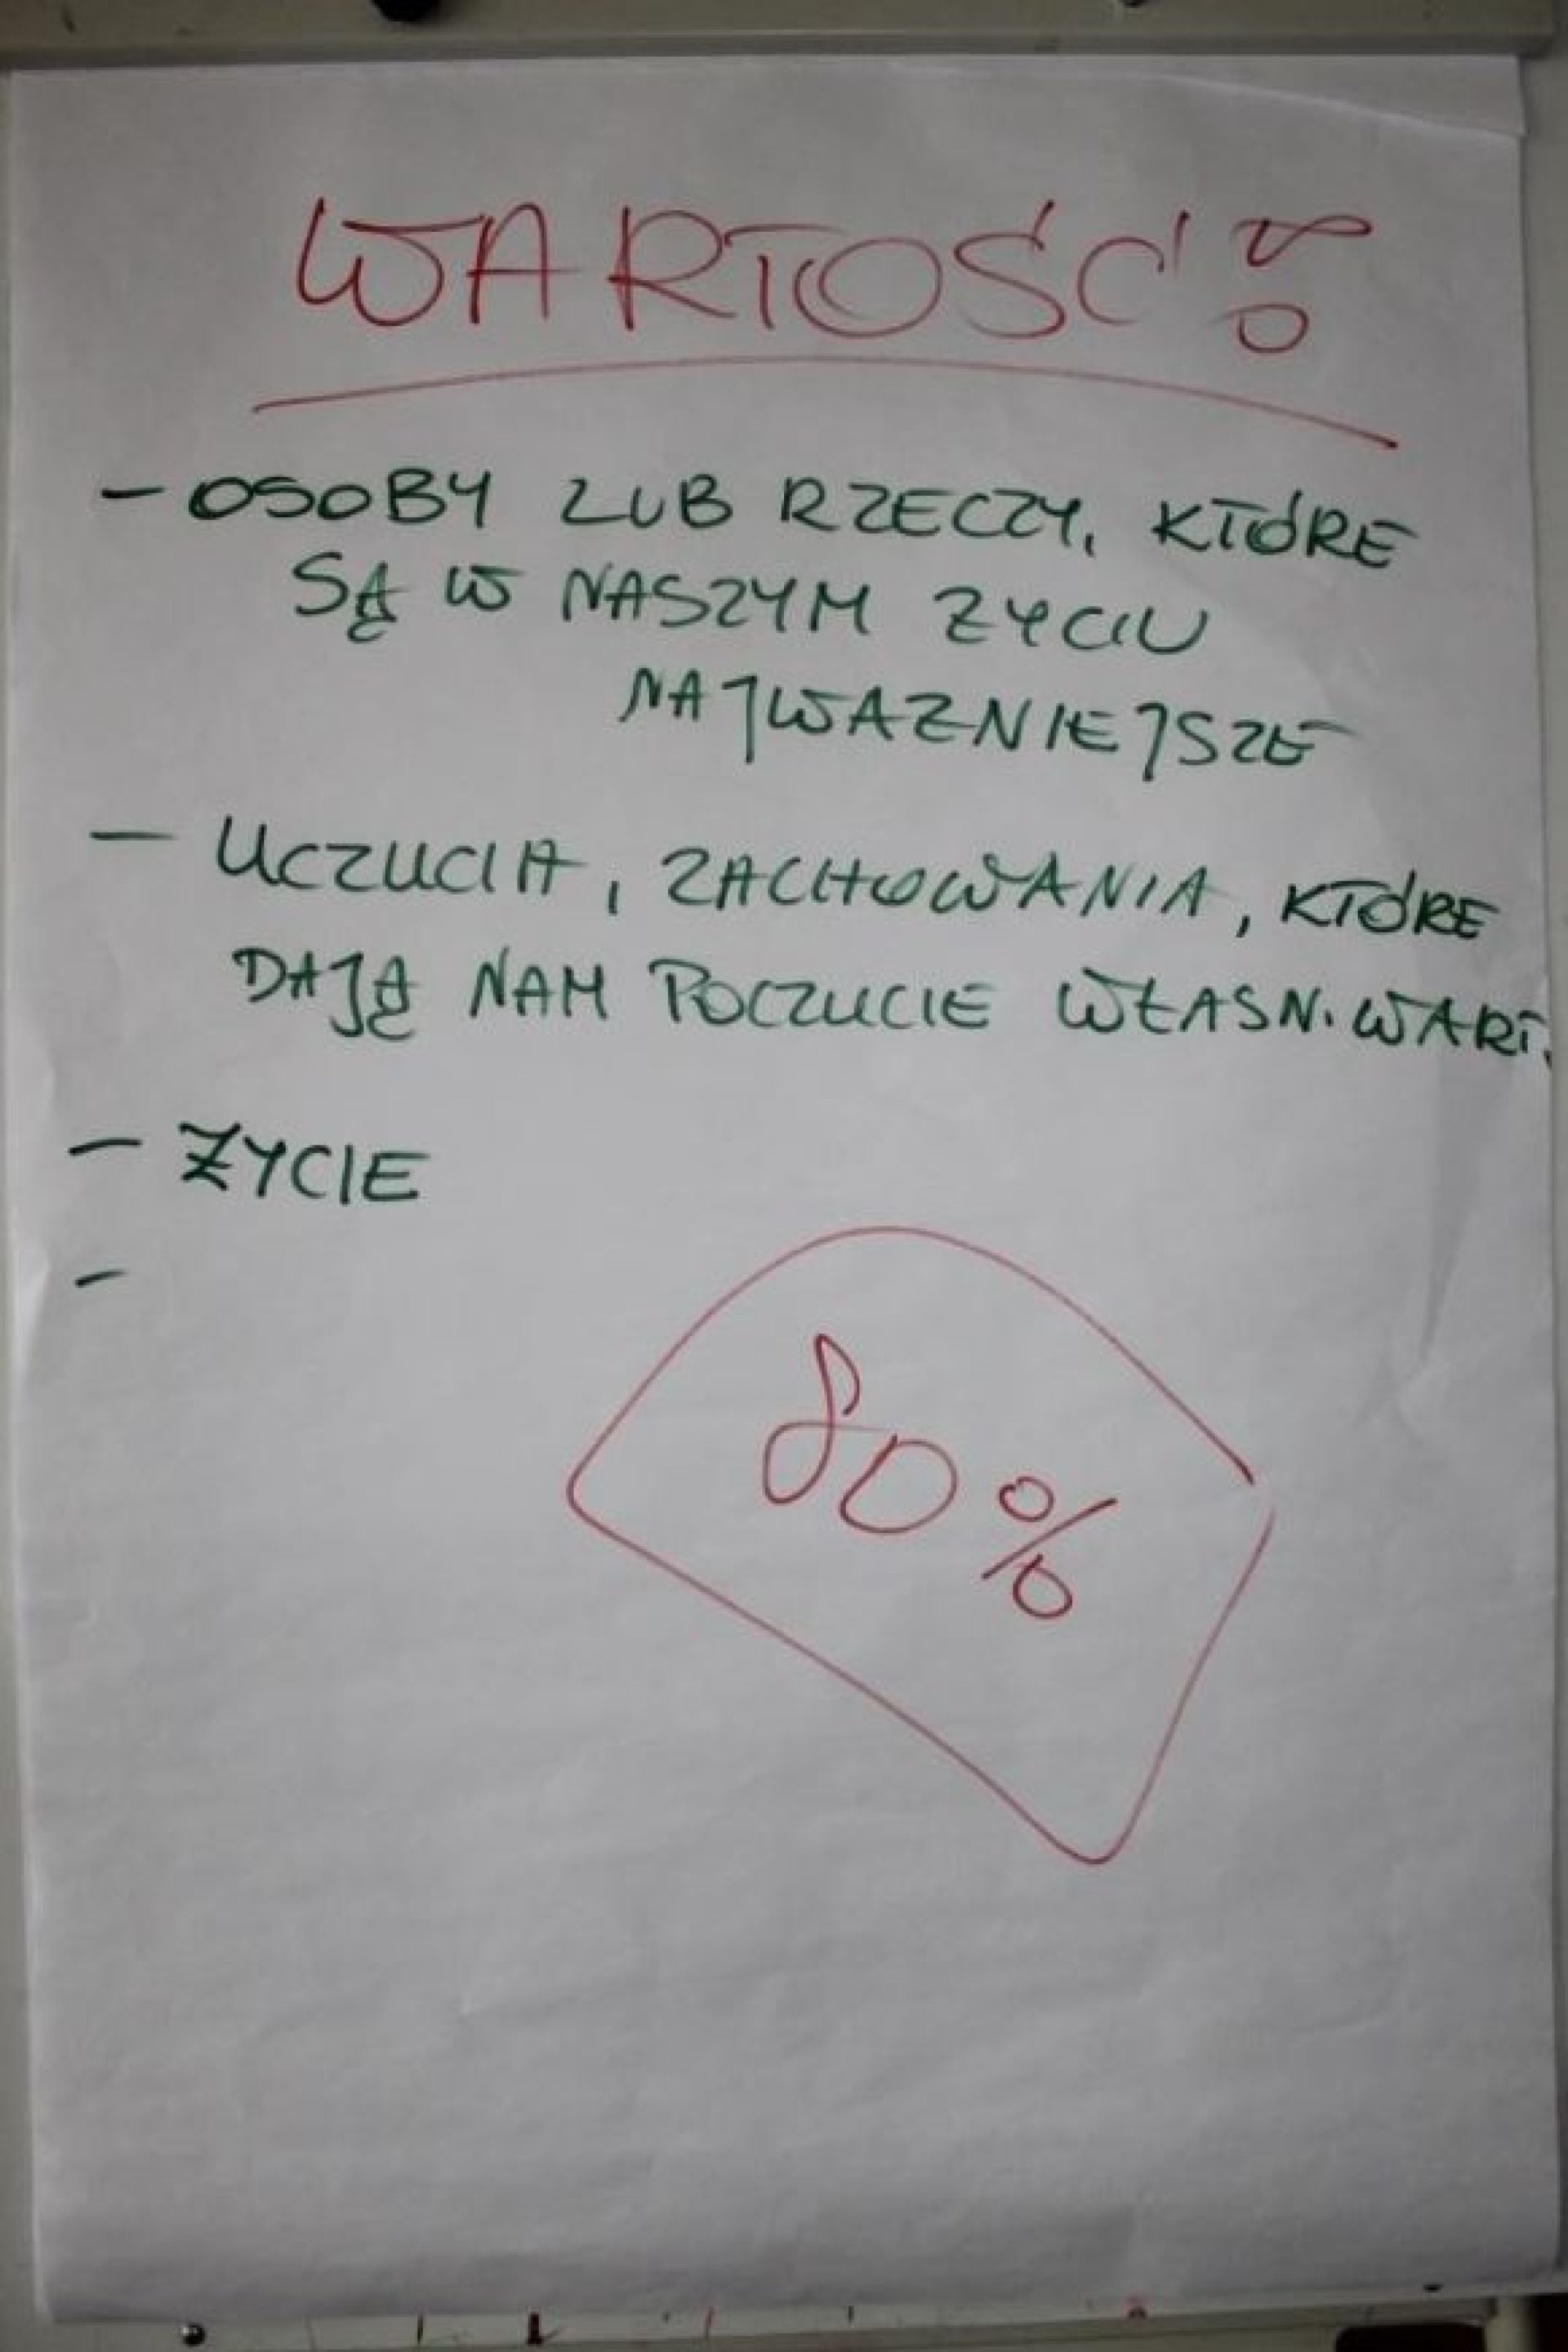 WARTOŚĆ
- OSOBY LUB RZECZY, KTÓRE
SĄ W NASZYM ZYCIU
NAJWAZNIEJSZE
- UCZUCIA, ZACHOWANIA, KTÓRE
DAJĄ NAM POCZUCIE WŁASN. WART.
- ŻYCIE
-
80%